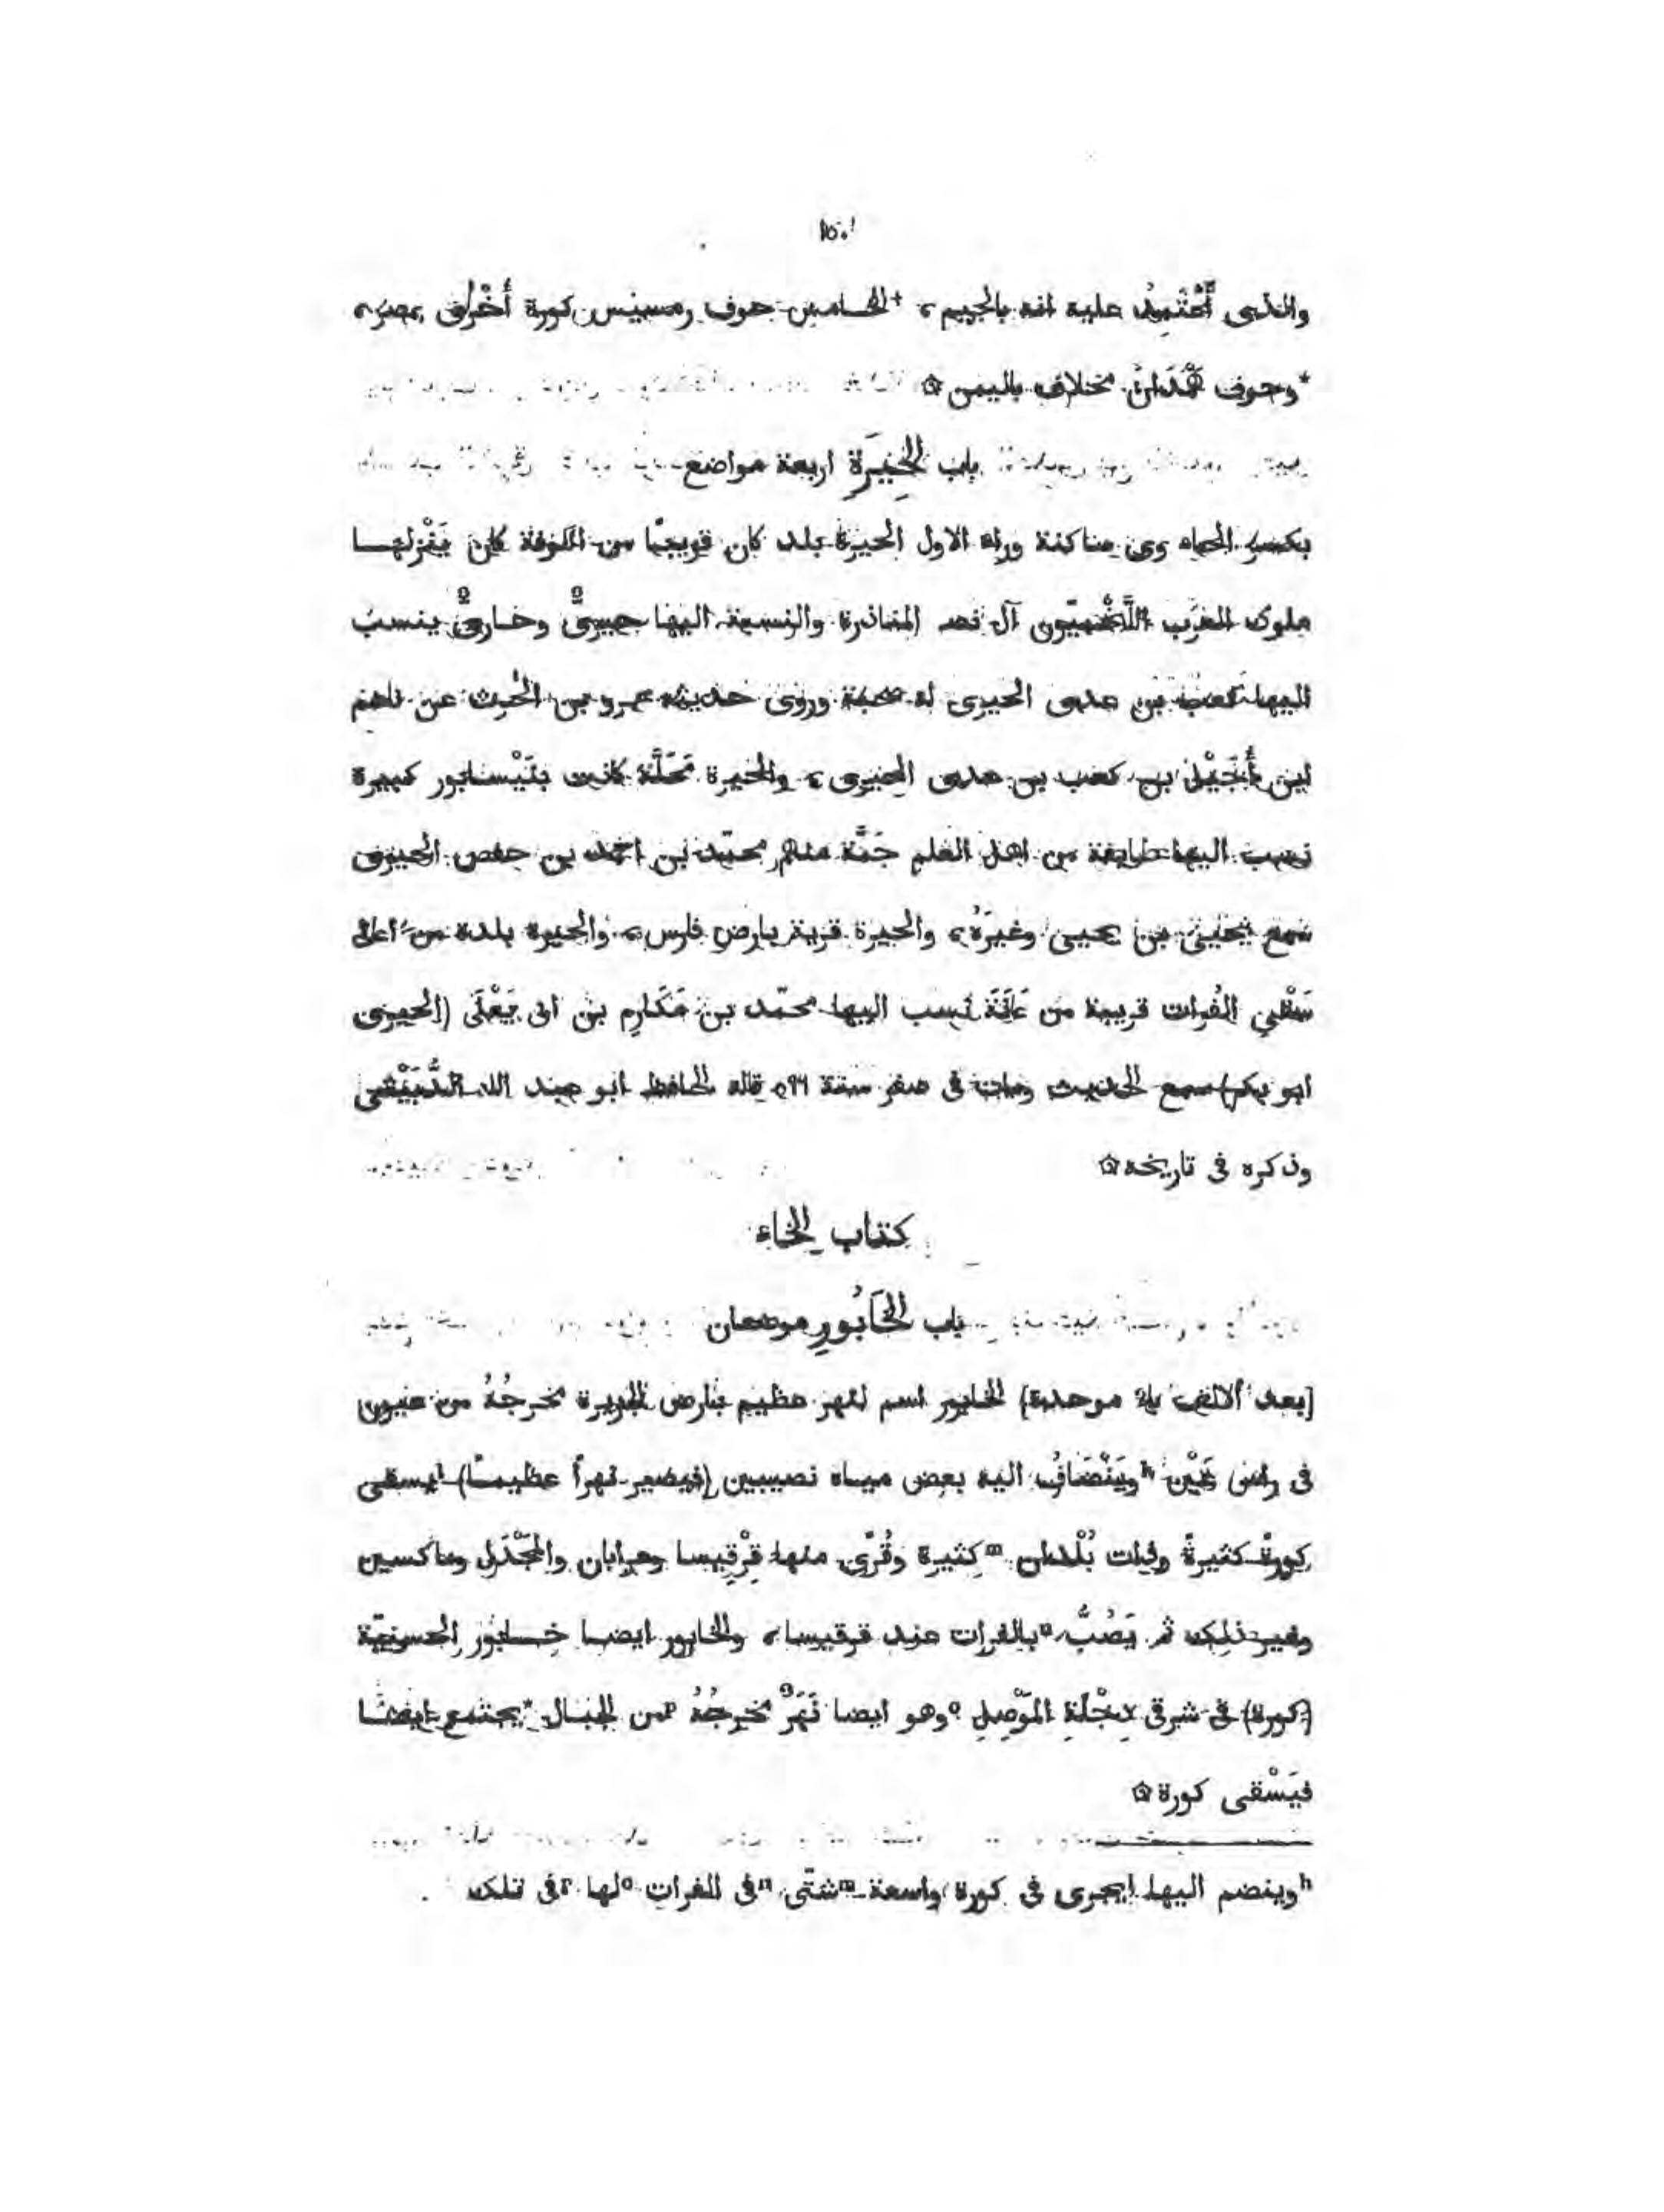 ١٥٠
والذى أَعْتَمِدُ عليه انه بالجيم، *الخامس حوف رمسيس كورة أُخْرَى بمصر،
*وحوف هَمْدَانَ مخلاف باليمن ۞
باب الحِيرَة اربعة مواضع
بكسر الحاء وى ساكنة وراء الاول الحيرة بلد كان قريبًا من الكوفة كان يَنْزلها
ملوك العرب اللَّخْمِيّون آل نصر المناذرة والنسبة اليها حيرىٌّ وحارىٌّ ينسب
اليها كعب بن عدى الحيرى له صحبة وروى حديثه عمرو بن الحٰرث عن ناعم
ابن أُجَيْل بن كعب بن عدى الحيرى، والحيرة مَحَلَّة كانت بنَيْسابور كبيرة
نسب اليها طايفة من اهل العلم جَمَّة منهم محمّد بن احمد بن حفص الحيرى
سمع يحيى بن يحيى وغيرَهُ، والحيرة قرية بارض فارس، والحيرة بلدة من اعالى
سَقْىِ الفُرات قريبة من عَانَةَ نسب اليها محمّد بن مَكَارِم بن ابى يَعْلَى (الحيرى
ابو بكر) سمع الحديث ومات فى صفر سنة ٥٩٦ قاله الحافظ ابو عبد الله الدُّبَيْثى
وذكره فى تاريخه ۞
كتاب الخاء
باب الخَابُورِ موضعان
[بعد الالف باء موحدة] الخابور اسم لنهر عظيم بارض الجزيرة مخرجُهُ من عيون
فى راس عَيْن hويَنْضَافُ اليه بعض مياه نصيبين (فيصير نهرًا عظيمًا) lيسقى
كورةً كثيرةً وذات بُلْدان mكثيرة وقُرًى منها قِرْقِيسا وعرابان والمَجْدَل وماكسين
وغير ذلك ثم يَصُبُّ nبالفرات عند قرقيسا، والخابور ايضا خابور الحسنيّة
(كورة) فى شرقى دِجْلَةِ المَوْصِلِ oوهو ايضا نَهَرٌ مخرجُهُ pمن الجبال *يجتمع ايضا
فيَسْقى كورة ۞
hوينضم اليها lيجرى فى كورة واسعة mشتّى nفى الفرات oلها pفى تلك